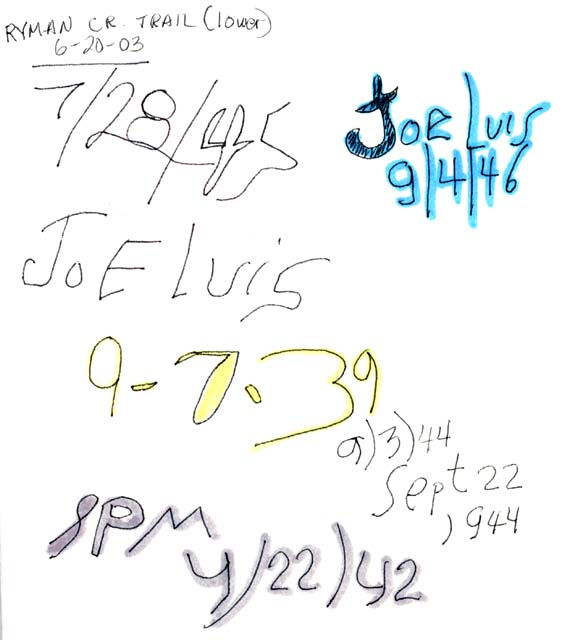 RYMAN CR. TRAIL (lower)
6-20-03
7/28/45
JoE Luis
9/4/46
JoE Luis
9-7-39
9)3)44
Sept 22
)944
SPM
4/22)42